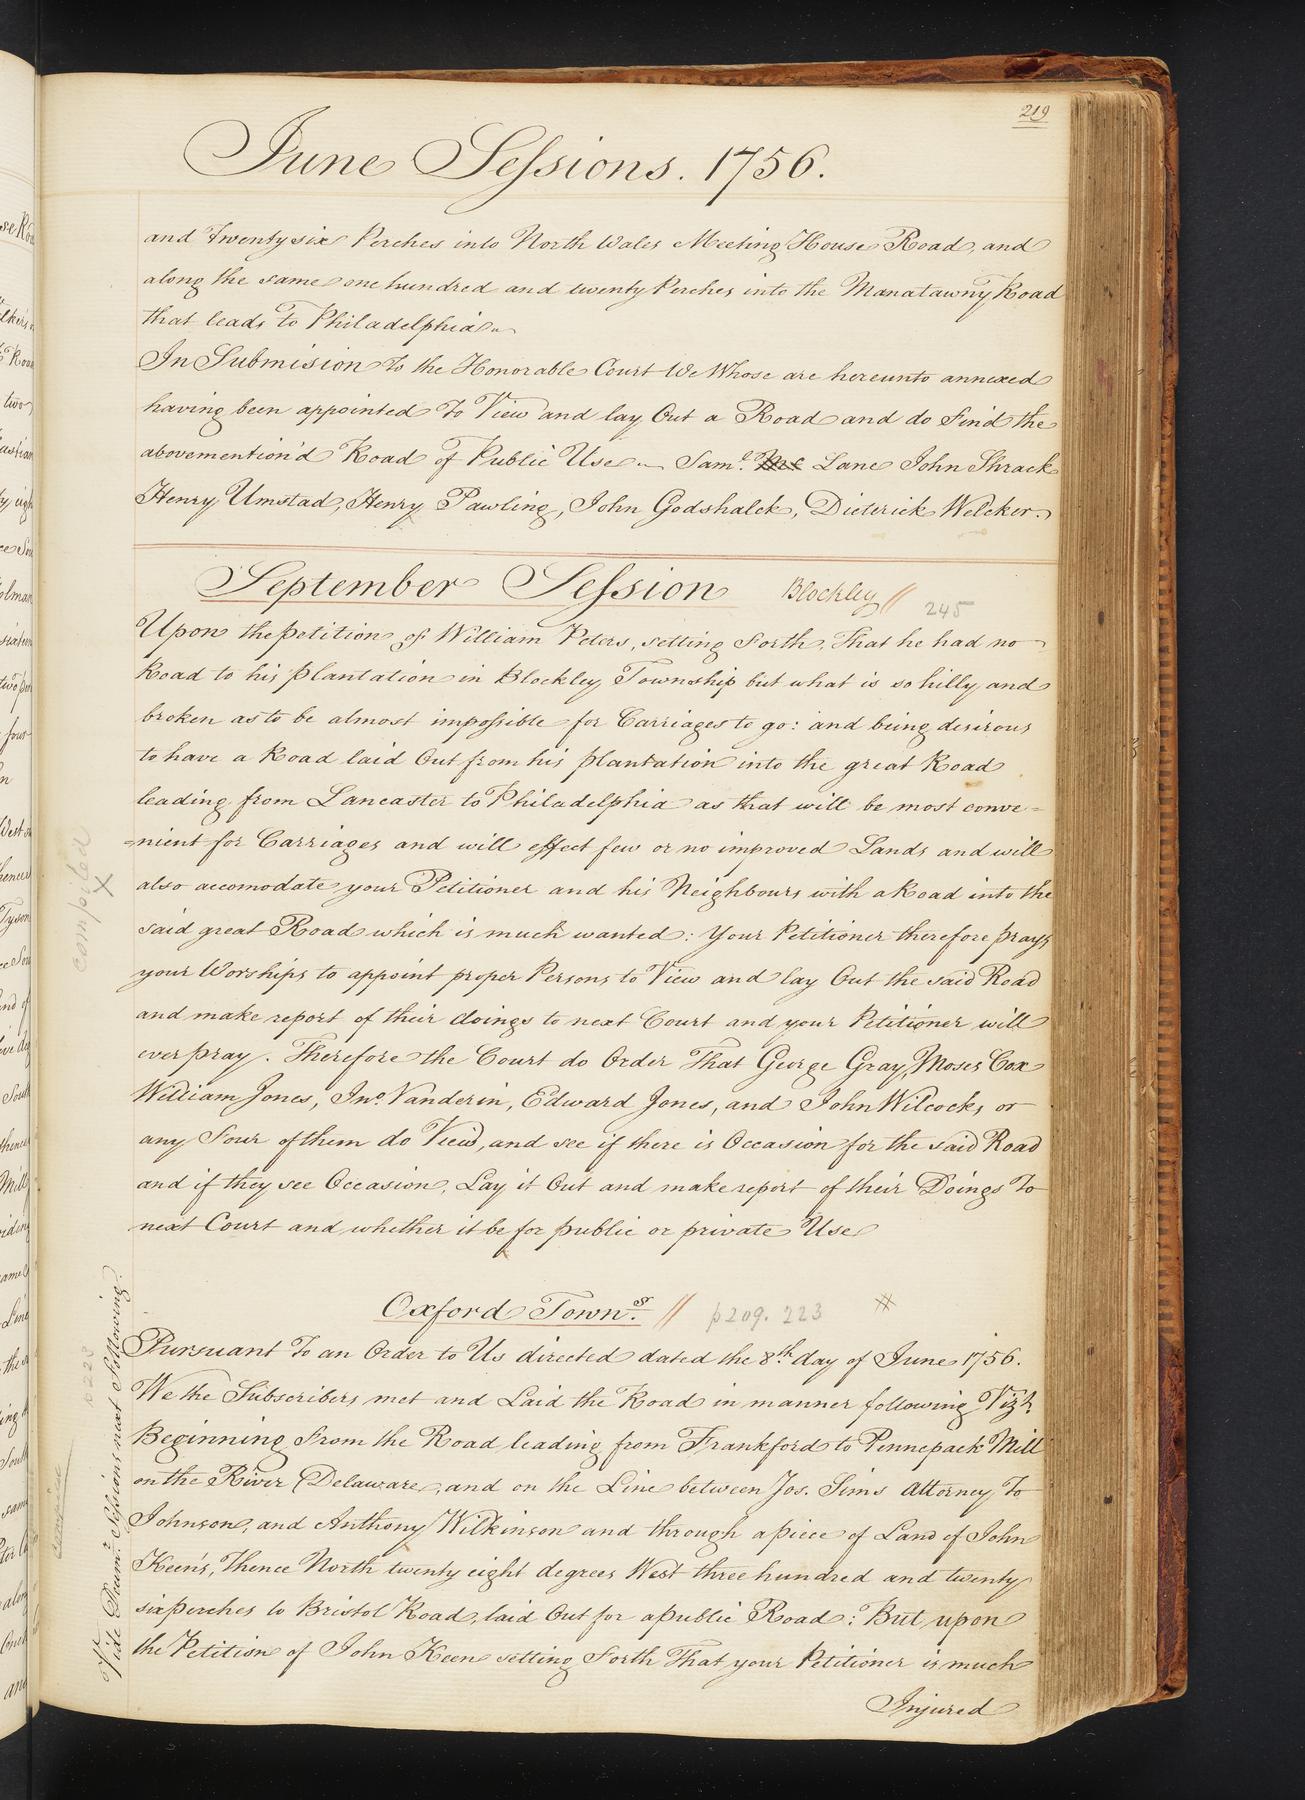 219
June Sessions. 1756.
and Twenty six Perches into North Wales Meeting House Road, and
along the same one hundred and twenty Perches into the Manatawny Road
that leads To Philadelphia
In Submision To the Honorable Court We Whose are hereunto annexed
having been appointed To View and lay Out a Road and do find the
abovemention'd Road of Public Use Saml. Lane John Shrack
Henry Umstad, Henry Pawling, John Godshalck, Dieterick Welcker.
September Session Blockley // 245
Upon the petition of William Peters, setting forth, That he had no
Road to his plantation in Blockley Township but what is so hilly and
broken as to be almost impossible for Carriages to go: and being desirous
to have a Road laid Out from his plantation into the great Road
leading from Lancaster to Philadelphia as that will be most conve=
=nient for Carriages and will effect few or no improved Lands and will
also accomodate your Petitioner and his Neighbours with a Road into the
said great Road which is much wanted: Your Petitioner therefore prays
your Worships to appoint proper Persons to View and lay Out the said Road
and make report of their doings to next Court and your Petitioner will
ever pray. Therefore the Court do Order That George Gray, Moses Cox
William Jones, Jno. Vanderin, Edward Jones, and John Wilcocks or
any Four of them do View, and see if there is Occasion for the said Road
and if they see Occasion, Lay it Out and make report of their Doings To
next Court and whether it be for public or private Use
compiled
X
Oxford Townsp. // p209. 223 #
Pursuant To an Order to Us directed dated the 8th. day of June 1756.
We the Subscribers met and Laid the Road in manner following Vizt.
Beginning From the Road leading from Frankford to Pennepack Mill
on the River Delaware, and on the Line between Jos. Sims Attorney To
Johnson, and Anthony Wilkinson and through a piece of Land of John
Keen's, Thence North twenty eight degrees West three hundred and twenty
six perches to Bristol Road, laid Out for a public Road: But upon
the Petition of John Keen setting Forth That your Petitioner is much
Injured
Vide Decemr. Sessions next Following
p223